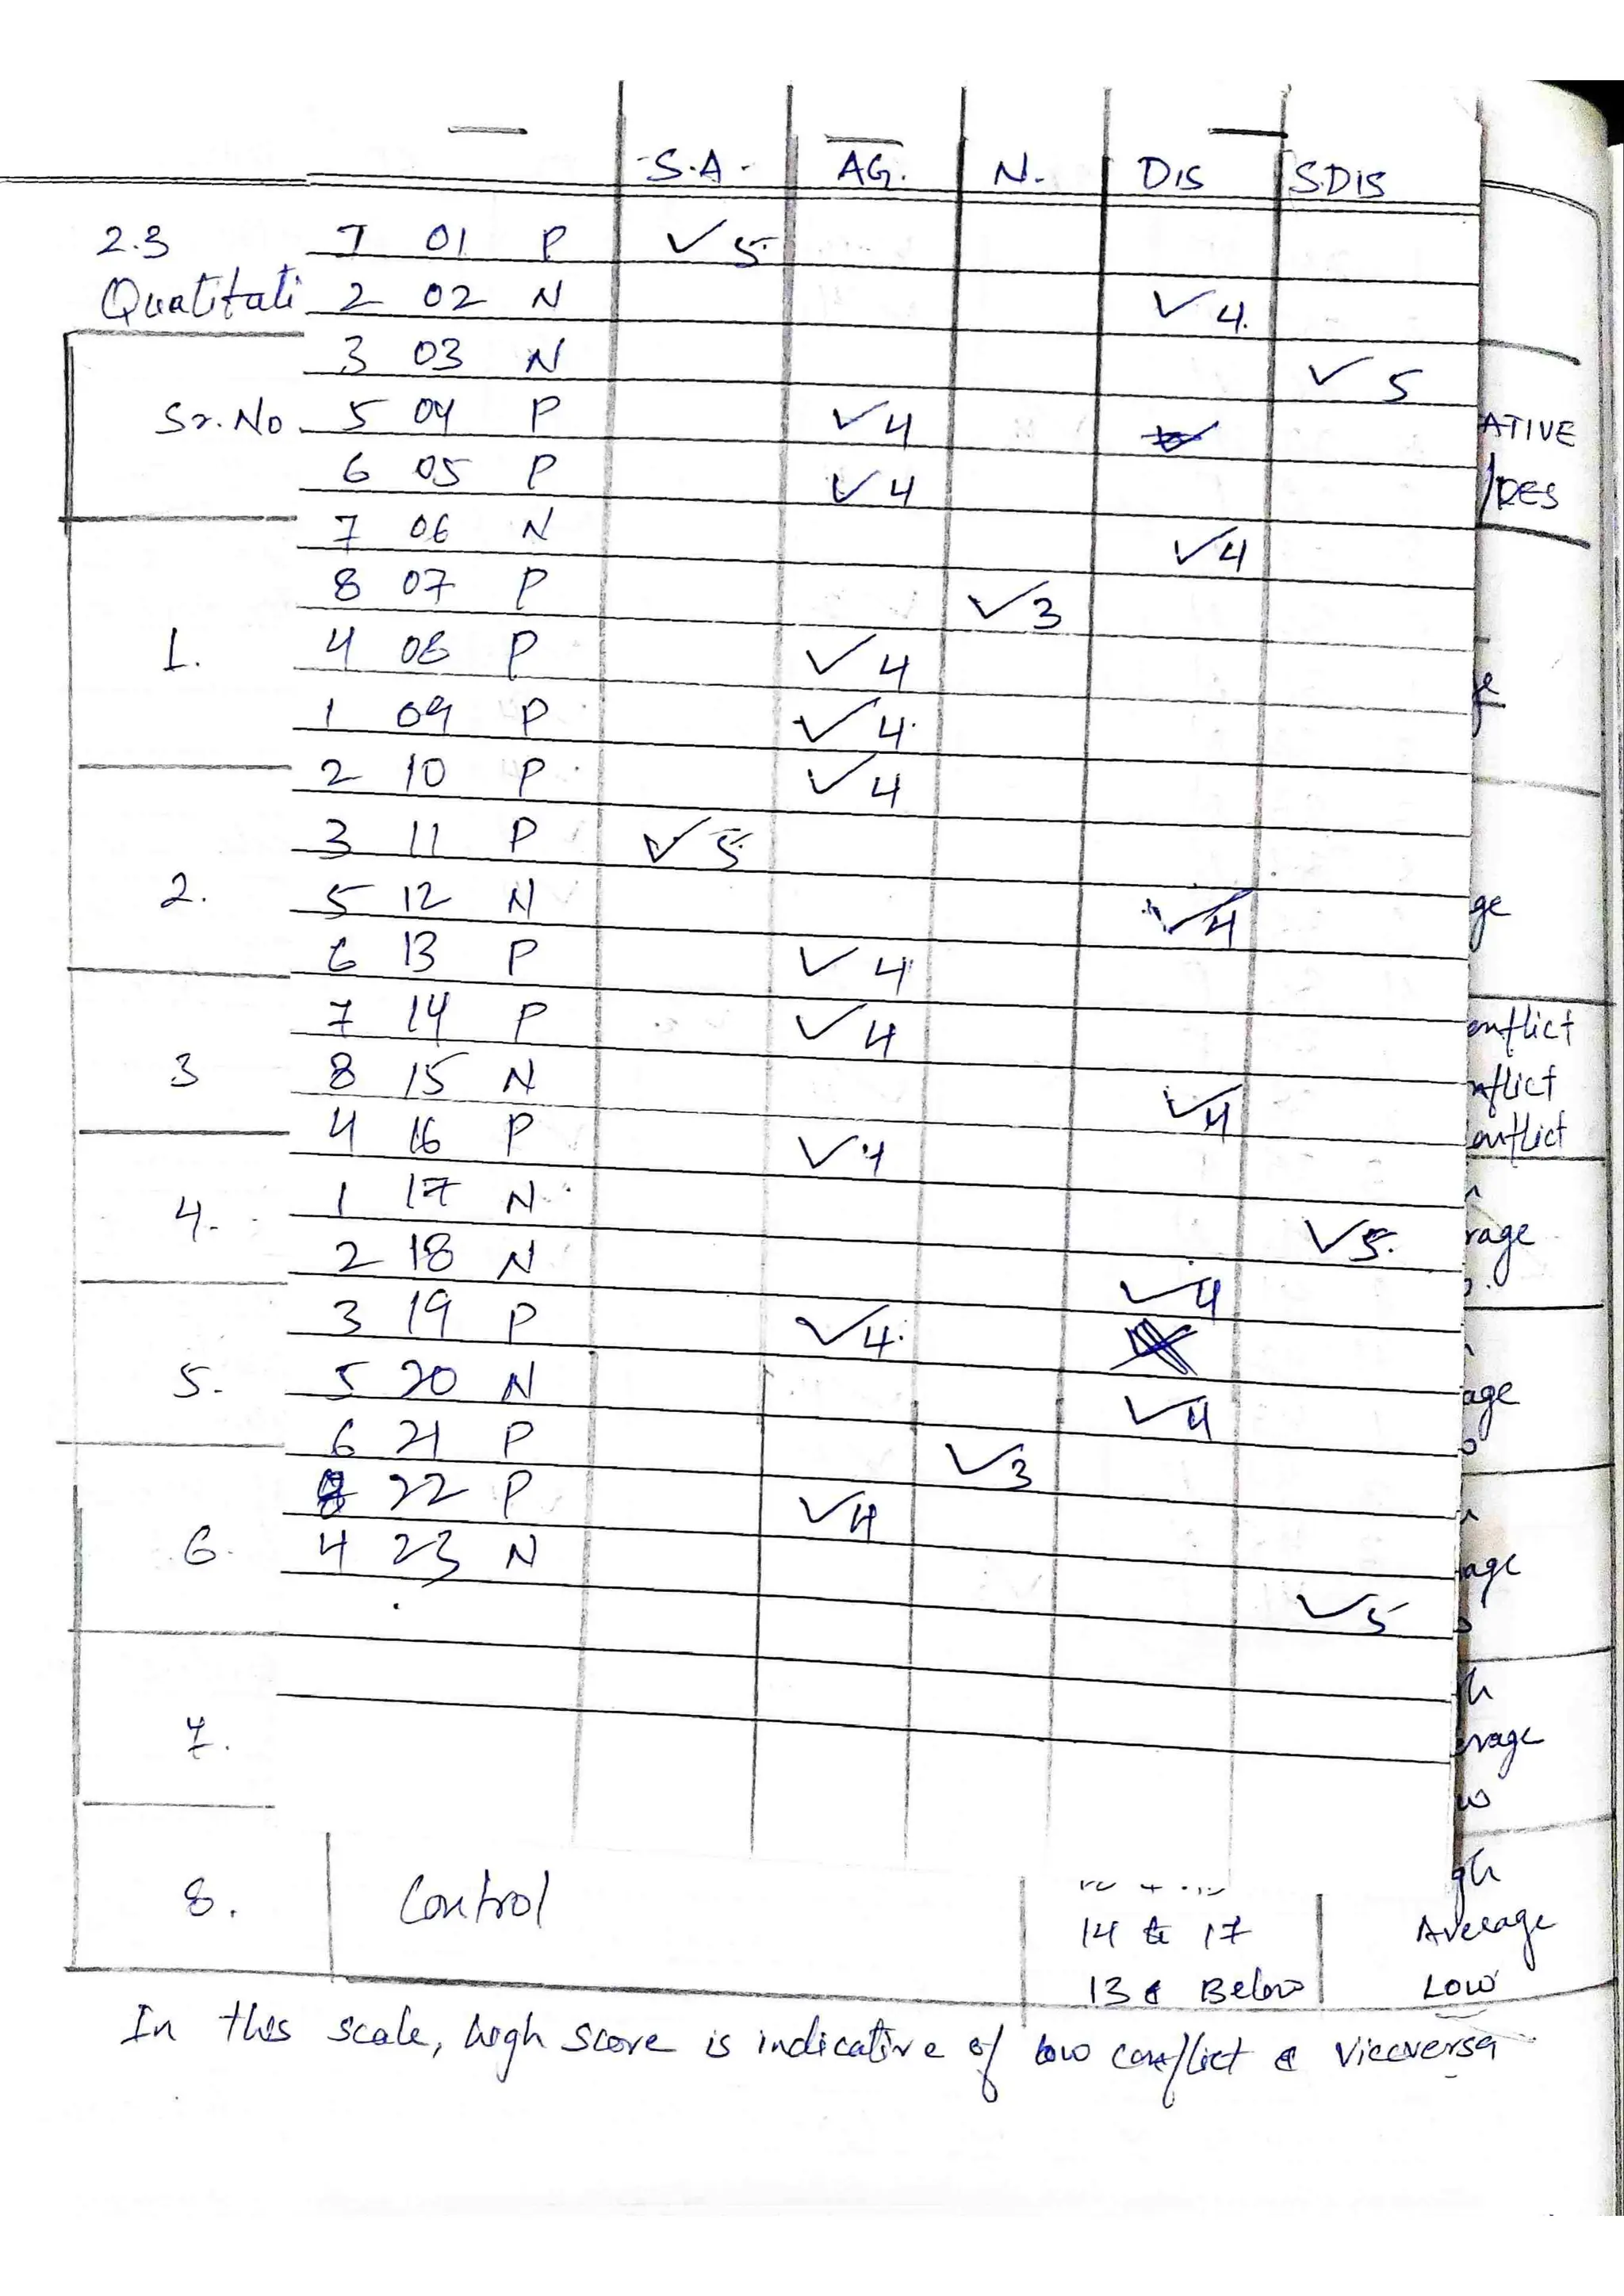 S.A. AG. N. DIS S.DIS
2.3 1 01 P ✓ 5
Quatitati 2 02 N ✓ 4
3 03 N ✓ 5
Sr.No 5 04 P ✓ 4
ATIVE
6 05 P ✓ 4
/RES
7 06 N ✓ 4
8 07 P ✓ 3
1. 4 08 P ✓ 4
1 09 P ✓ 4
2 10 P ✓ 4
3 11 P ✓ 5
2. 5 12 N ✓ 4
ge
6 13 P ✓ 4
7 14 P ✓ 4
onflict
3 8 15 N ✓ 4
nflict
4 16 P ✓ 4
onflict
4. 1 17 N ✓ 5
rage
2 18 N ✓ 4
3 19 P ✓ 4
5. 5 20 N ✓ 4
age
6 21 P ✓ 3
8 22 P ✓ 4
6. 4 23 N
age
✓ 5
7.
erage
w
gh
8. Control
14 to 17 Average
13 & Below Low
In this scale, high score is indicative of low conflict & viceversa